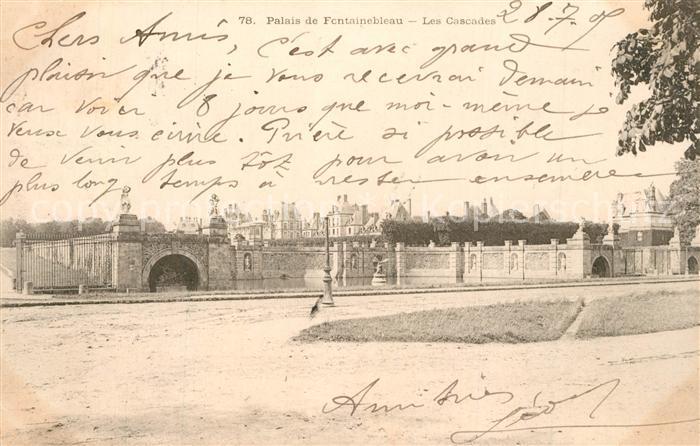 78. Palais de Fontainebleau — Les Cascades
28-7-05
Chers Amis, C'est avec grand
plaisir que je vous recevrai demain
car voici 8 jours que moi-même je
veux vous écrire. Prière si possible
de venir plus tôt pour avoir un
plus long temps à rester ensemble
Amitiés
Léo